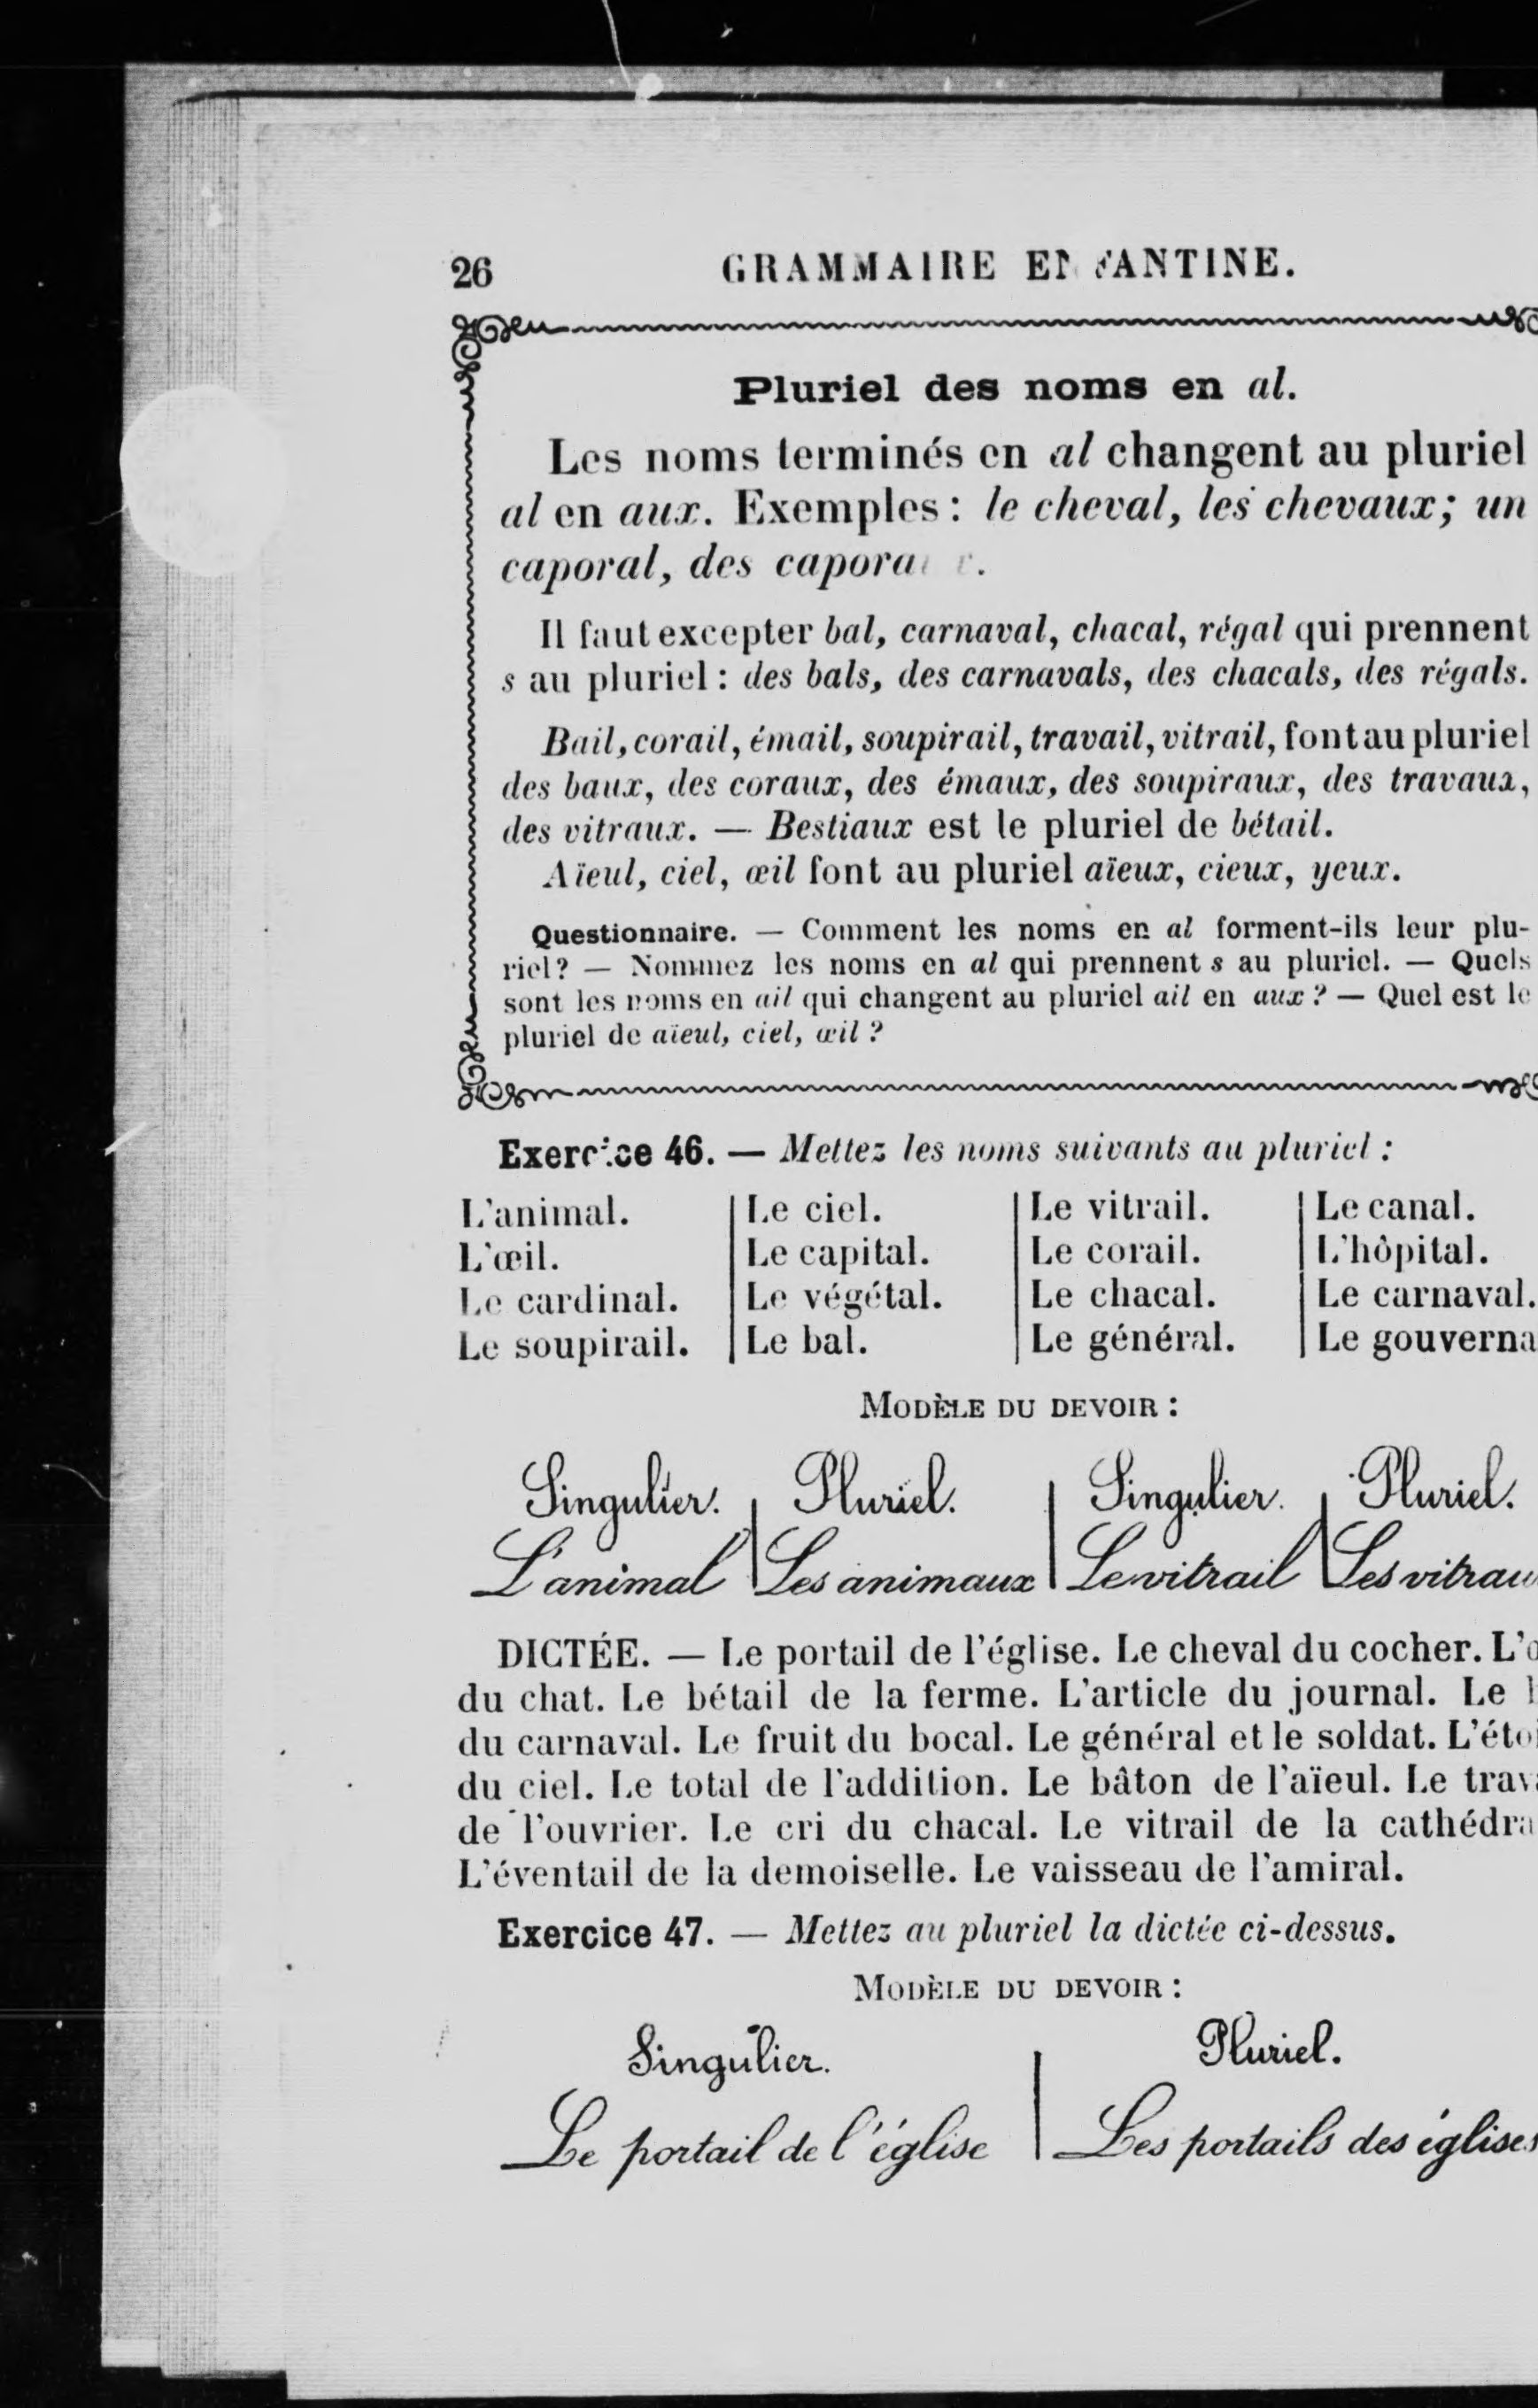 26 GRAMMAIRE ENFANTINE.
Pluriel des noms en al.
Les noms terminés en al changent au pluriel
al en aux. Exemples : le cheval, les chevaux; un
caporal, des
Il faut excepter bal, carnaval, chacal, régal qui prennent
s au pluriel : des bals, des carnavals, des chacals, des régals.
Bail, corail, émail, soupirail, travail, vitrail, font au pluriel
des baux, des coraux, des émaux, des soupiraux, des travaux,
des vitraux. — Bestiaux est le pluriel de bétail.
Aïeul, ciel, œil font au pluriel aïeux, cieux, yeux.
Questionnaire. — Comment les noms en al forment-ils leur plu-
riel? — Nommez les noms en al qui prennent s au pluriel. — Quels
sont les noms en ail qui changent au pluriel ail en aux ? — Quel est le
pluriel de aïeul, ciel, œil ?
Exercice 46. — Mettez les noms suivants au pluriel :
L'animal. Le ciel. Le vitrail. Le canal.
L'œil. Le capital. Le corail. L'hôpital.
Le cardinal. Le végétal. Le chacal. Le carnaval.
Le soupirail. Le bal. Le général. Le
MODÈLE DU DEVOIR :
Singulier. Pluriel. Singulier. Pluriel.
L'animal Les animaux Le vitrail Les
DICTÉE. — Le portail de l'église. Le cheval du cocher.
du chat. Le bétail de la ferme. L'article du journal. Le
du carnaval. Le fruit du bocal. Le général et le soldat.
du ciel. Le total de l'addition. Le bâton de l'aïeul. Le
de l'ouvrier. Le cri du chacal. Le vitrail de la
L'éventail de la demoiselle. Le vaisseau de l'amiral.
Exercice 47. — Mettez au pluriel la dictée ci-dessus.
MODÈLE DU DEVOIR :
Singulier. Pluriel.
Le portail de l'église Les portails des églises